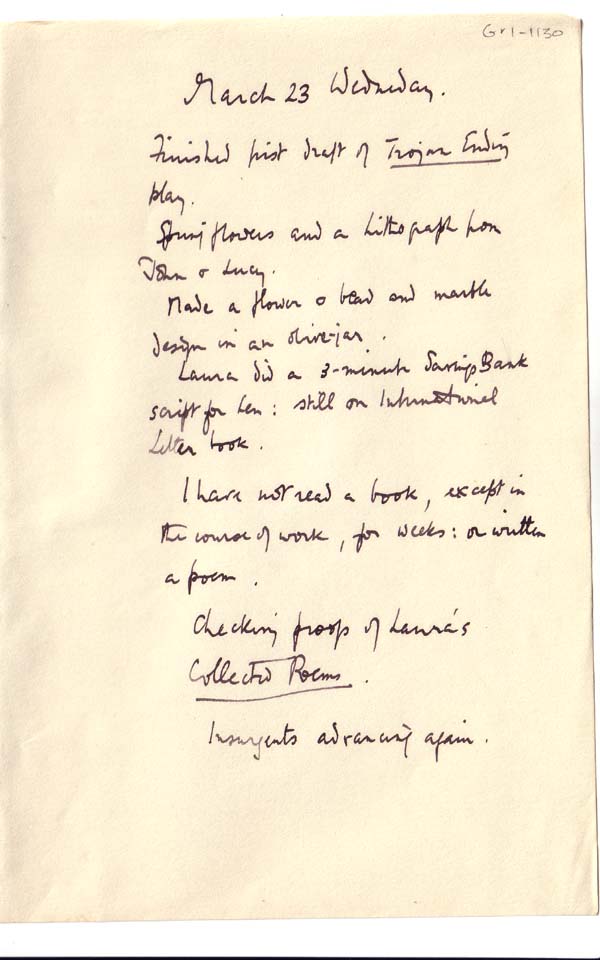 Gr1-1130
March 23 Wednesday.
Finished first draft of Trojan Ending
play.
Spring flowers and a lithograph from
John & Lucy.
Made a flower & bead and marble
design in an olive-jar.
Laura did a 3-minute Savings Bank
script for Len: still on International
Letter book.
I have not read a book, except in
the course of work, for weeks: or written
a poem.
Checking proofs of Laura's
Collected Poems.
Insurgents advancing again.